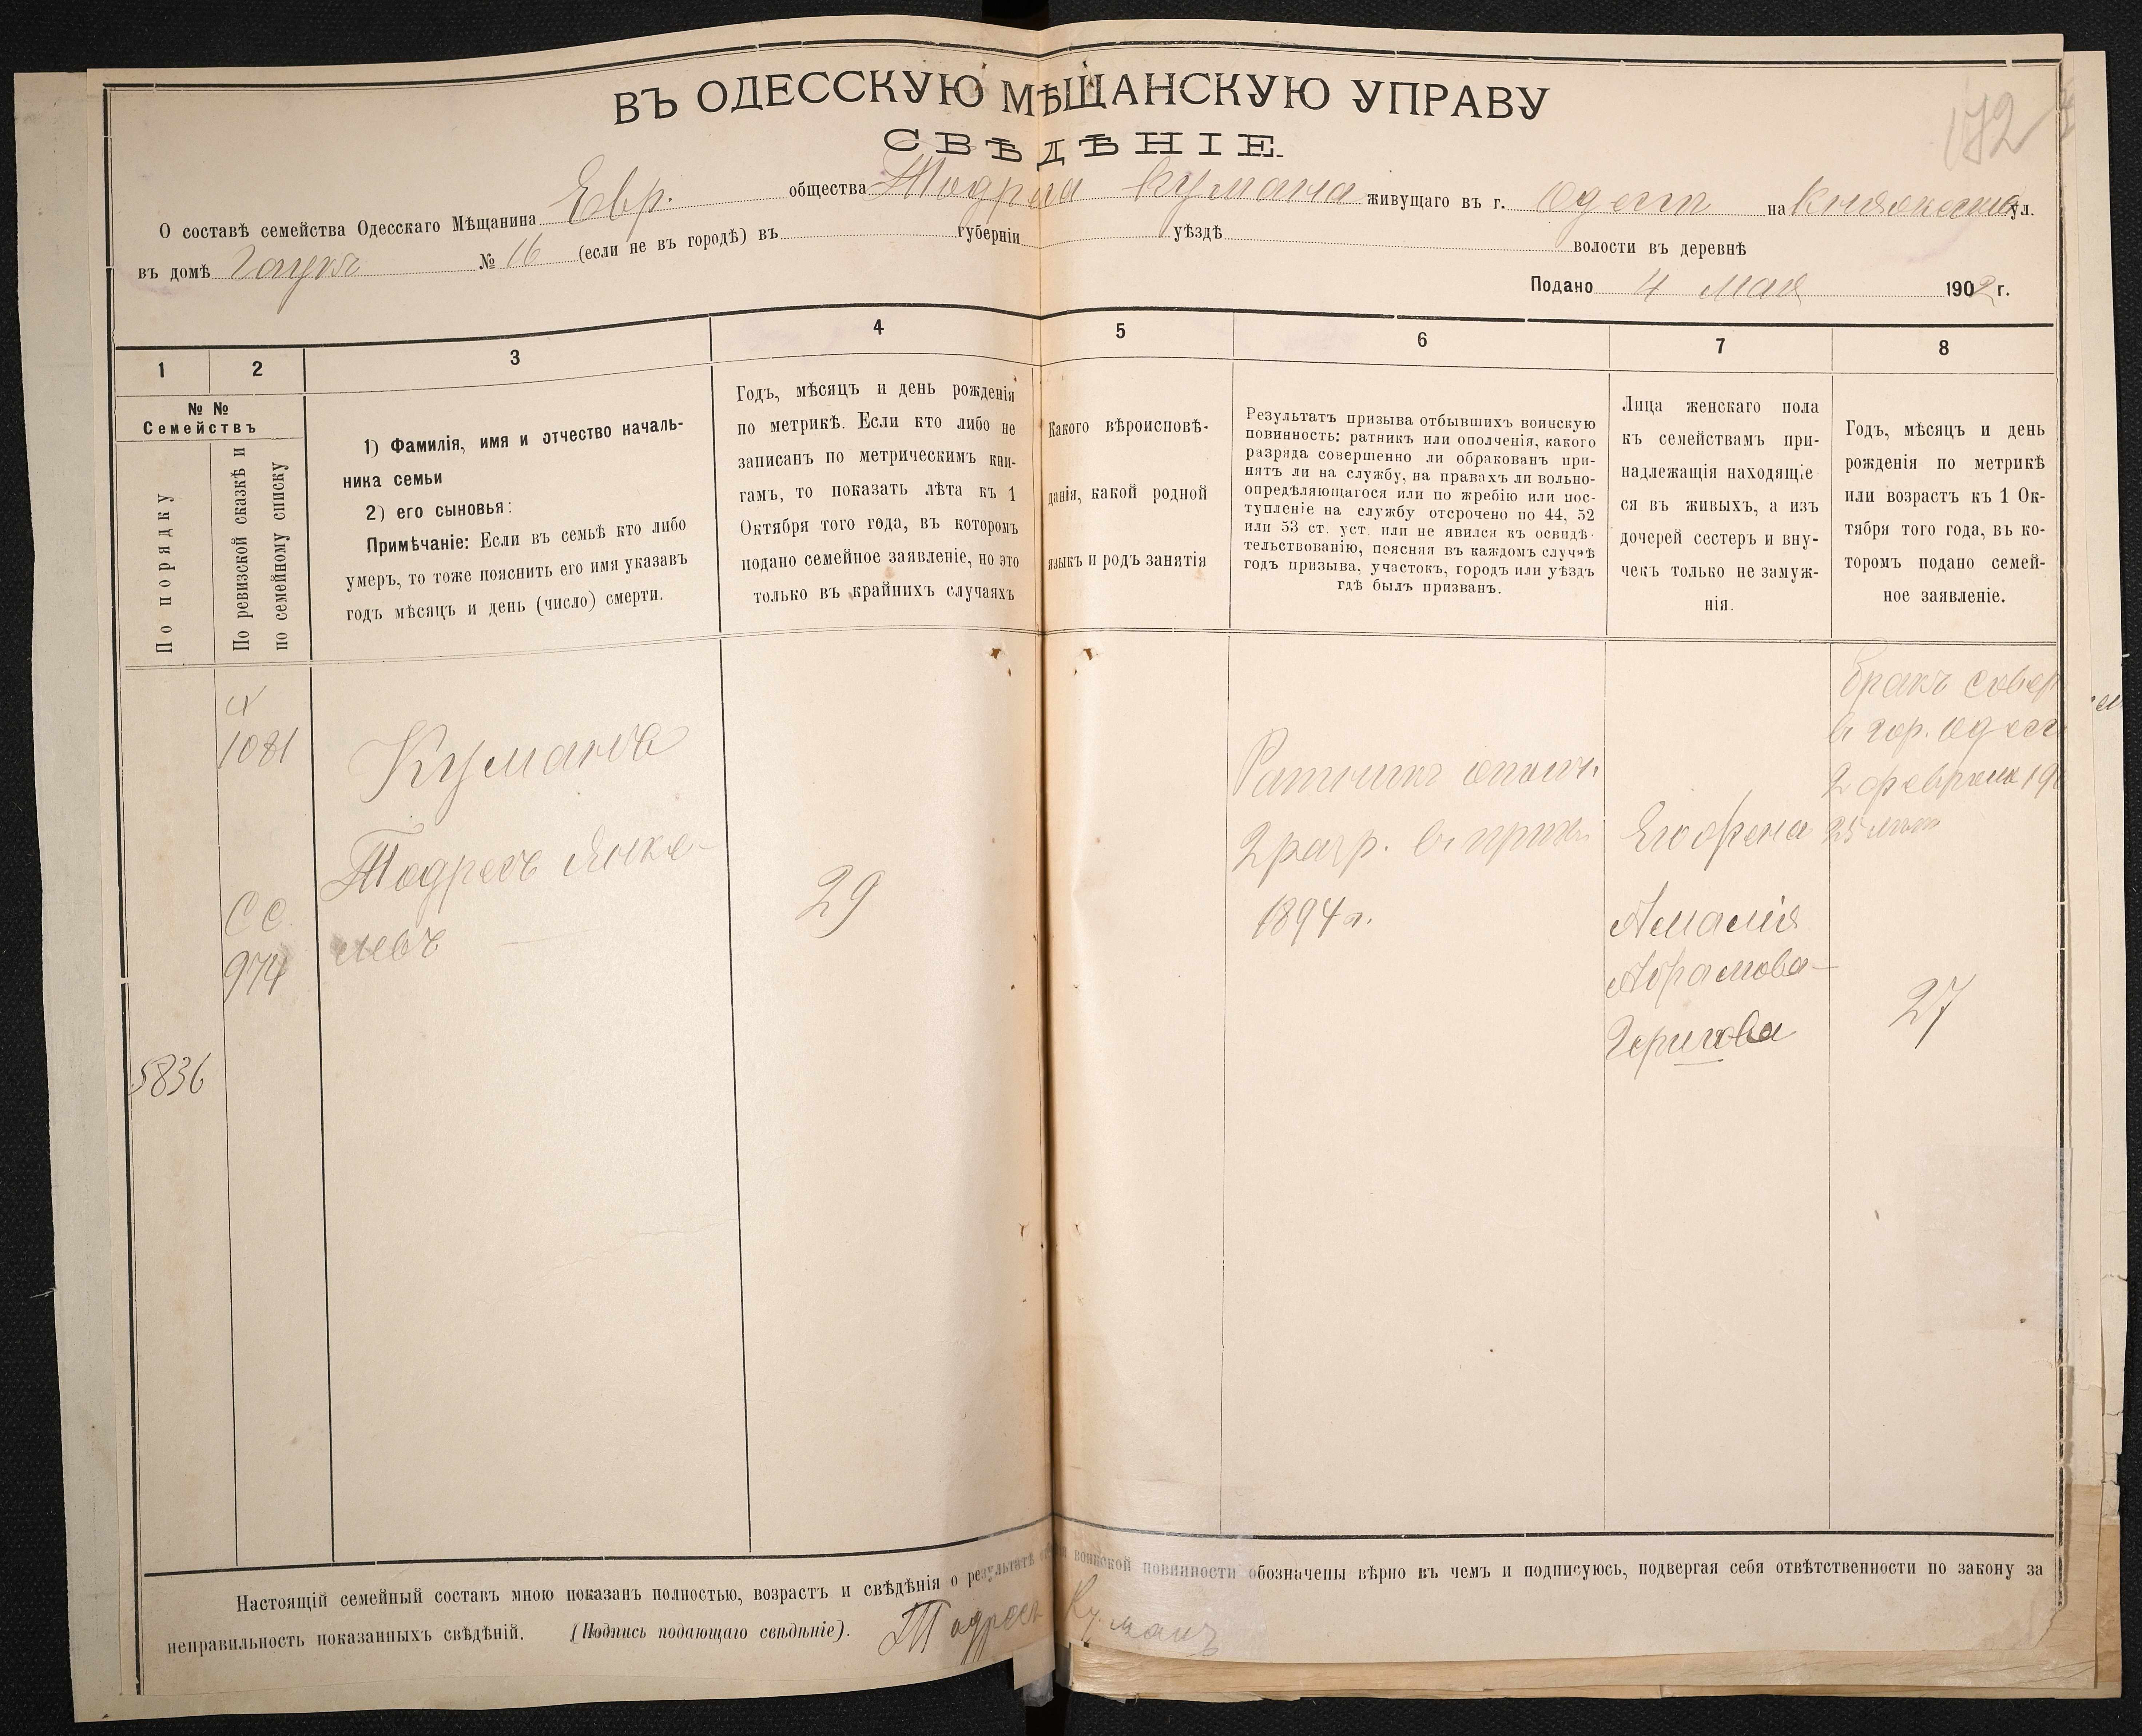 172
ВЪ ОДЕССКУЮ МѢЩАНСКУЮ УПРАВУ
СВѢДѢНІЕ.
О составѣ семейства Одесскаго Мѣщанина Евр. общества Тодреса Кумана живущаго въ г. Одессѣ на Княжеской ул.
въ домѣ № 16 (если не въ городѣ) въ губерніи уѣздѣ волости въ деревнѣ
Подано 4 Мая 1902 г.
1 2 3 4 5 6 7 8
№ №
Семействъ
По порядку
По ревизской сказкѣ и
по семейному списку
1) Фамилія, имя и отчество началь-
ника семьи
2) его сыновья:
Примѣчаніе: Если въ семьѣ кто либо
умеръ, то тоже пояснить его имя указавъ
годъ мѣсяцъ и день (число) смерти.
Годъ, мѣсяцъ и день рожденія
по метрикѣ. Если кто либо не
записанъ по метрическимъ кни-
гамъ, то показать лѣта къ 1
Октября того года, въ которомъ
подано семейное заявленіе, но это
только въ крайнихъ случаяхъ
Какого вѣроисповѣ-
данія, какой родной
языкъ и родъ занятія
Результатъ призыва отбывшихъ воинскую
повинность: ратникъ или ополченія, какого
разряда совершенно ли обракованъ при-
нятъ ли на службу, на правахъ ли вольно-
опредѣляющагося или по жребію или пос-
тупленіе на службу отсрочено по 44, 52
или 53 ст. уст. или не явился къ освидѣ-
тельствованію, поясняя въ каждомъ случаѣ
годъ призыва, участокъ, городъ или уѣздъ
гдѣ былъ призванъ.
Лица женскаго пола
къ семействамъ при-
надлежащія находящіе
ся въ живыхъ, а изъ
дочерей сестеръ и вну-
чекъ только не замуж-
нія.
Годъ, мѣсяцъ и день
рожденія по метрикѣ
или возрастъ къ 1 Ок-
тября того года, въ ко-
торомъ подано семей-
ное заявленіе.
5836
1081
СС
974
Куманъ
Тодресъ Янке-
левъ
29
Ратникъ ополч.
2 разр. въ
1894 г.
Его жена
Амалія
Абрамова-
Бракъ совер
въ гор. Одесс
2 февраля
25 лѣтъ
27
Настоящій семейный составъ мною показанъ полностью, возрастъ и свѣдѣнія о результатѣ воинской повинности обозначены вѣрно въ чемъ и подписуюсь, подвергая себя отвѣтственности по закону за
неправильность показанныхъ свѣдѣній. (Подпись подающаго свѣдѣніе). Тодресъ Куманъ